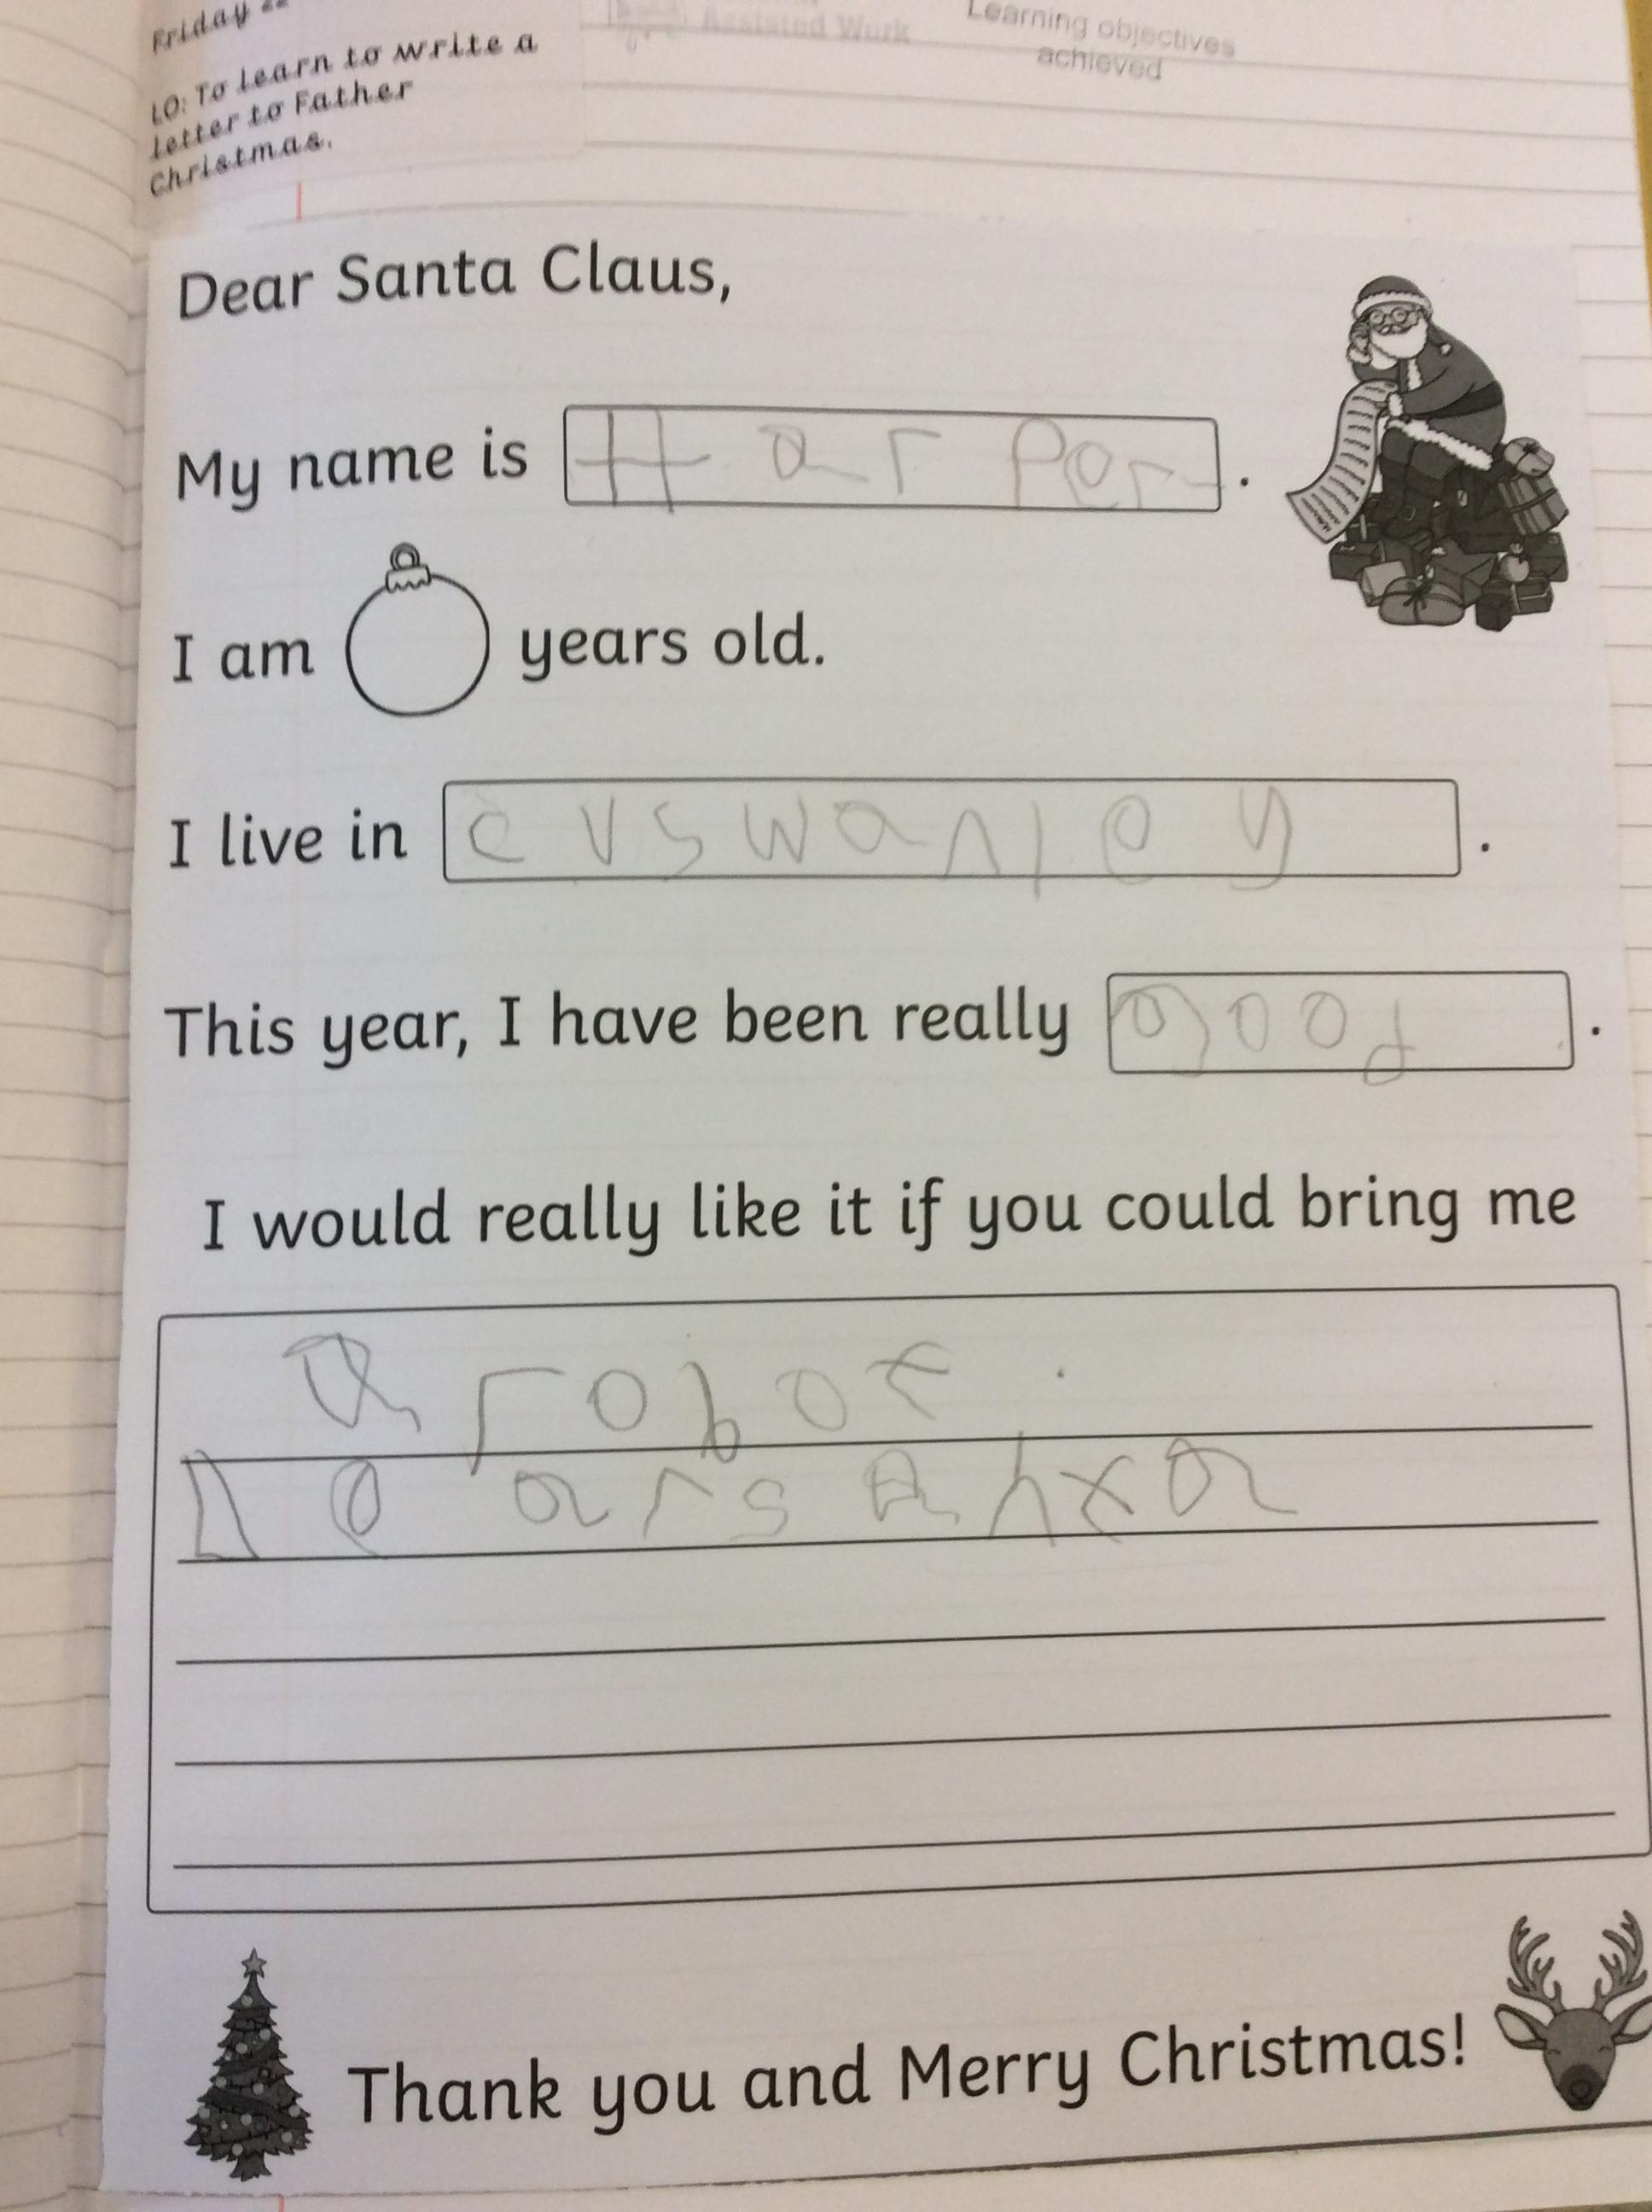 Friday
LO: To learn to write a
letter to Father
Christmas.
Assisted Work
Learning objectives
achieved
Dear Santa Claus,
My name is Harper.
I am years old.
I live in evswanley.
This year, I have been really good.
I would really like it if you could bring me
a robot.
Thank you and Merry Christmas!